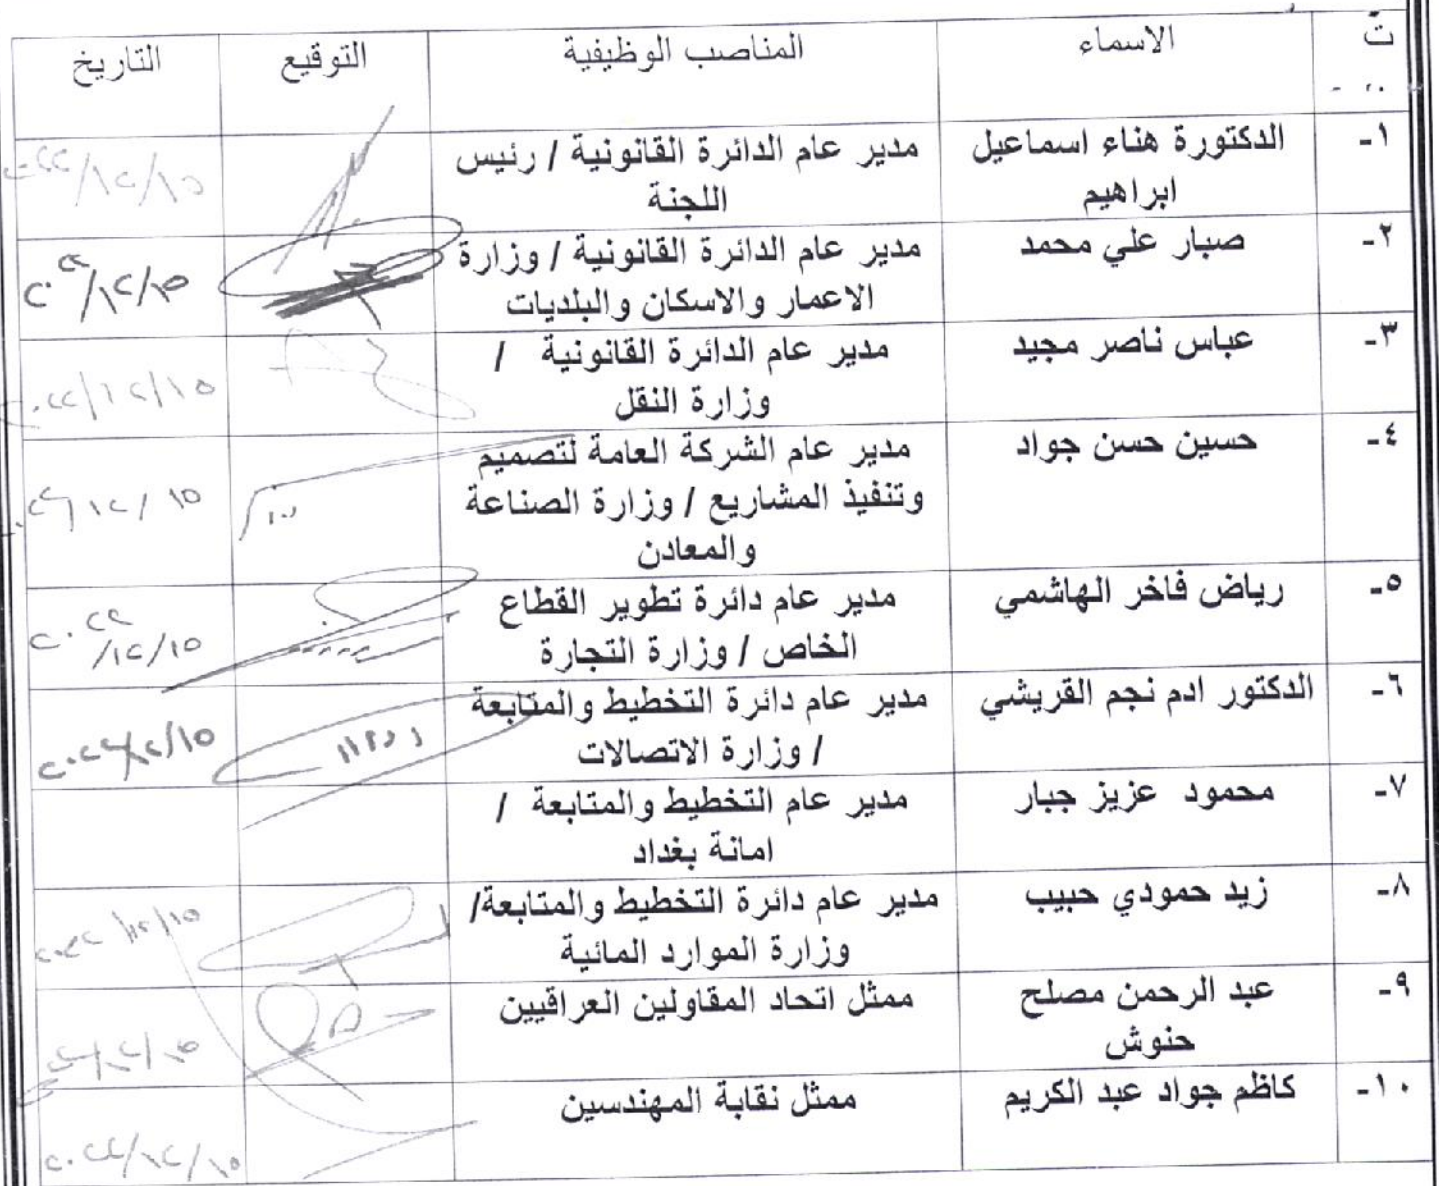 ت الاسماء المناصب الوظيفية التوقيع التاريخ
١- الدكتورة هناء اسماعيل مدير عام الدائرة القانونية / رئيس ٢٠٢٢/١٢/١٥
ابراهيم اللجنة
٢- صبار علي محمد مدير عام الدائرة القانونية / وزارة ٢٠٢٢/١٢/١٥
الاعمار والاسكان والبلديات
٣- عباس ناصر مجيد مدير عام الدائرة القانونية / ٢٠٢٢/١٢/١٥
وزارة النقل
٤- حسين حسن جواد مدير عام الشركة العامة لتصميم
وتنفيذ المشاريع / وزارة الصناعة ١٢/١٥
والمعادن
٥- رياض فاخر الهاشمي مدير عام دائرة تطوير القطاع ٢٠٢٢
الخاص / وزارة التجارة /١٢/١٥
٦- الدكتور ادم نجم القريشي مدير عام دائرة التخطيط والمتابعة ٢٠٢٢/١٢/١٥
/ وزارة الاتصالات
٧- محمود عزيز جبار مدير عام التخطيط والمتابعة /
امانة بغداد
٨- زيد حمودي حبيب مدير عام دائرة التخطيط والمتابعة/ ٢٠٢٢/١٢/١٥
وزارة الموارد المائية
٩- عبد الرحمن مصلح ممثل اتحاد المقاولين العراقيين
حنوش
١٠- كاظم جواد عبد الكريم ممثل نقابة المهندسين
٢٠٢٢/١٢/١٥